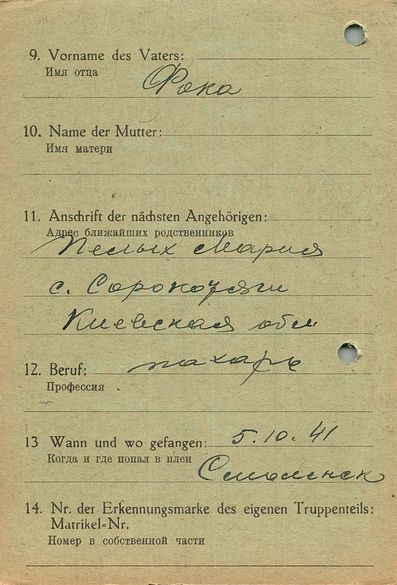 9. Vorname des Vaters:
Имя отца
Фока
10. Name der Mutter:
Имя матери
11. Anschrift der nächsten Angehörigen:
Адрес ближайших родственников
Пелых Мария
с. Сорокотяги
Киевская обл
12. Beruf: пахарь
Профессия
13 Wann und wo gefangen: 5.10.41
Когда и где попал в плен
Смоленск
14. Nr. der Erkennungsmarke des eigenen Truppenteils:
Matrikel-Nr.
Номер в собственной части